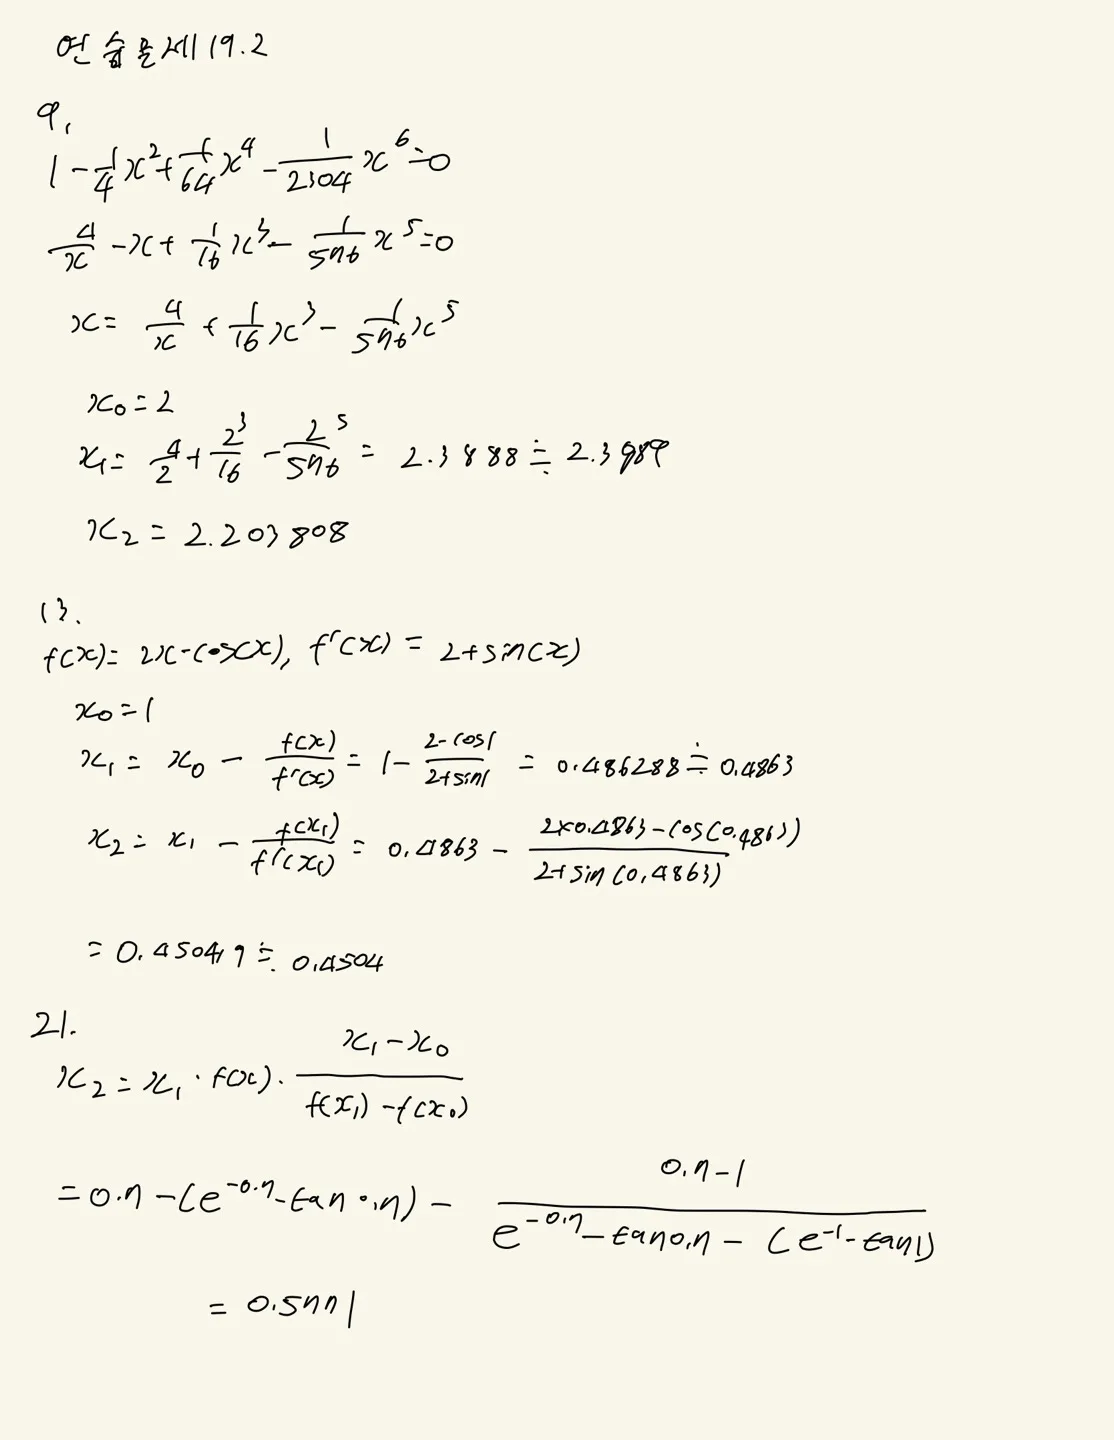 연습문제 19.2
9.
1 - 1/4 x^2 + 1/64 x^4 - 1/2304 x^6 = 0
4/x - x + 1/16 x^3 - 1/576 x^5 = 0
x = 4/x + 1/16 x^3 - 1/576 x^5
x_0 = 2
x_1 = 4/2 + 2^3/16 - 2^5/576 = 2.3888 ≒ 2.3989
x_2 = 2.203808
13.
f(x) = 2x - cos(x), f'(x) = 2 + sin(x)
x_0 = 1
x_1 = x_0 - f(x)/f'(x) = 1 - (2 - cos1)/(2 + sin1) = 0.486288 ≒ 0.4863
x_2 = x_1 - f(x_1)/f'(x_1) = 0.4863 - (2×0.4863 - cos(0.4863))/(2 + sin(0.4863))
= 0.450419 ≒ 0.4504
21.
x_2 = x_1 · f(x) · (x_1 - x_0)/(f(x_1) - f(x_0))
= 0.7 - (e^-0.7 - tan0.7) - (0.7 - 1)/(e^-0.7 - tan0.7 - (e^-1 - tan1))
= 0.5771